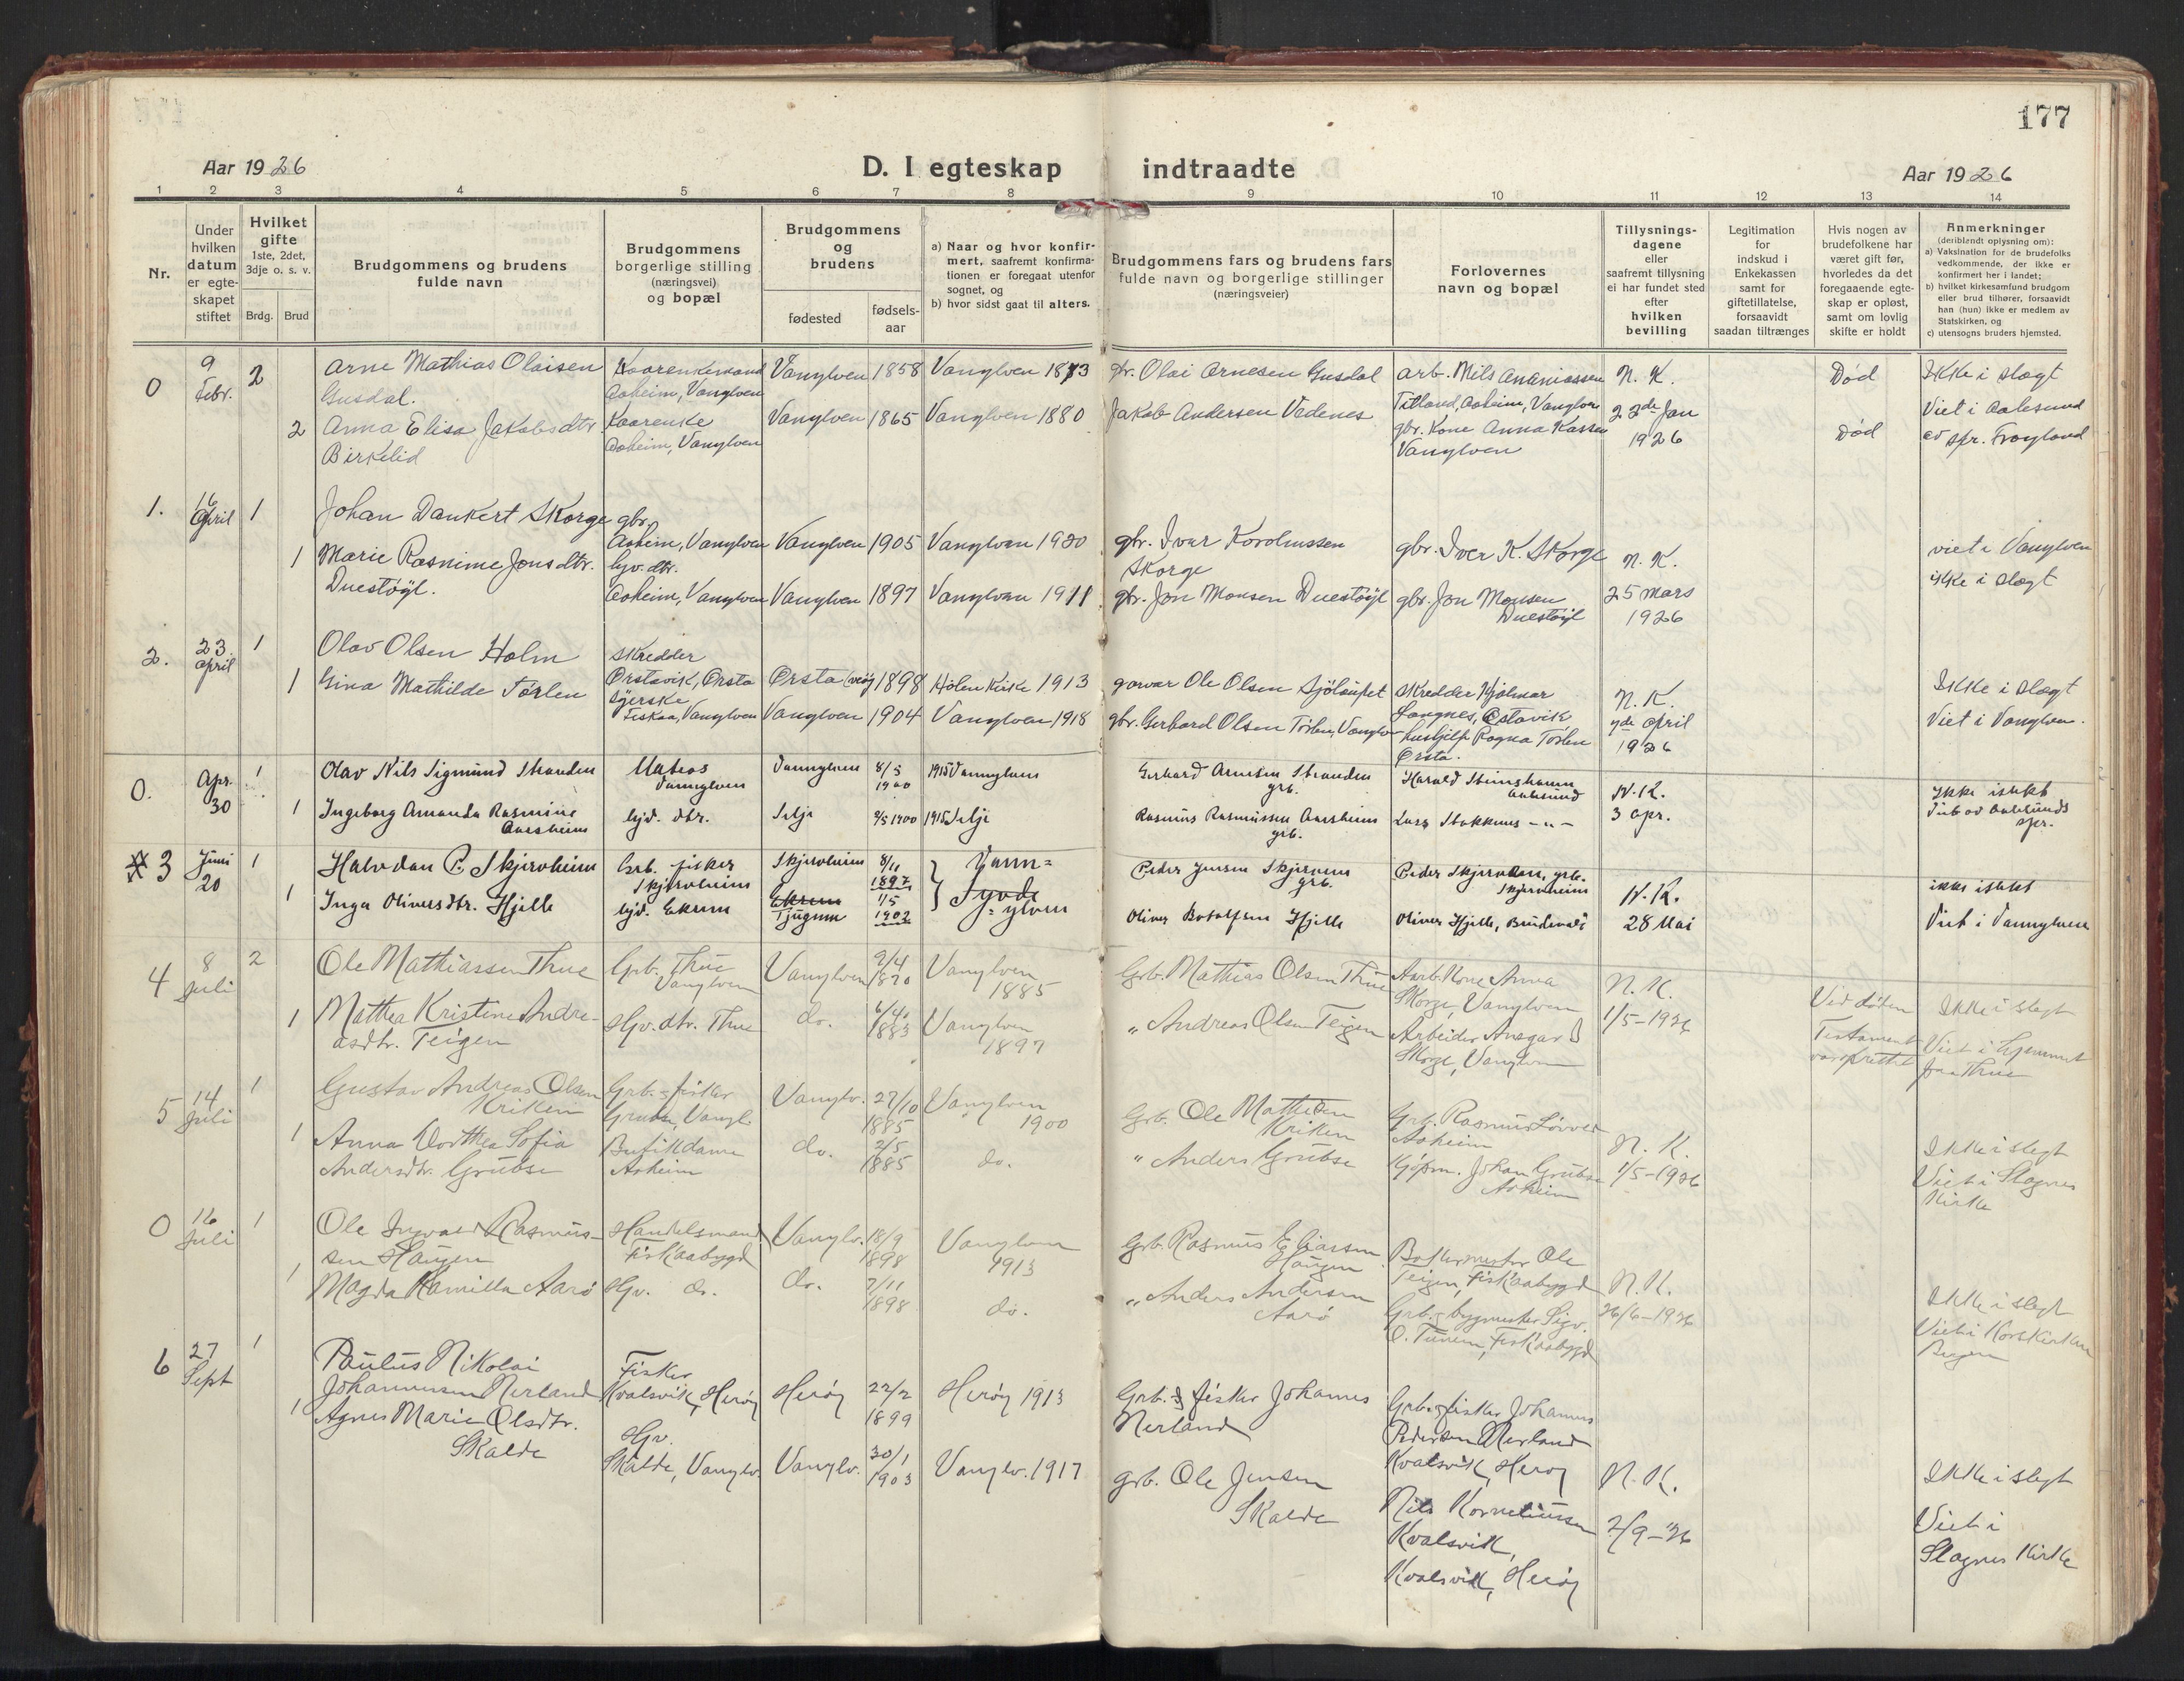 177
Aar 1926
D. I egteskap indtraadte
Aar 1926
1 2 3 4 5 6 7 8 9 10 11 12 13 14
Nr.
Under hvilken datum er egteskapet stiftet
Hvilket gifte 1ste, 2det, 3dje o. s. v.
Brdg. Brud
Brudgommens og brudens fulde navn
Brudgommens borgerlige stilling (næringsvei) og bopæl
Brudgommens og brudens
fødested
fødselsaar
a) Naar og hvor konfirmert, saafremt konfirmationen er foregaat utenfor sognet, og
b) hvor sidst gaat til alters.
Brudgommens fars og brudens fars fulde navn og borgerlige stillinger (næringsveier)
Forlovernes navn og bopæl
Tillysningsdagene eller saafremt tillysning ei har fundet sted efter hvilken bevilling
Legitimation for indskud i Enkekassen samt for giftetillatelse, forsaavidt saadan tiltrænges
Hvis nogen av brudefolkene har været gift før, hvorledes da det foregaaende egteskap er opløst, samt om lovlig skifte er holdt
Anmerkninger (deriblandt oplysning om):
a) Vaksination for de brudefolks vedkommende, der ikke er konfirmert her i landet;
b) hvilket kirkesamfund brudgom eller brud tilhører, forsaavidt han (hun) ikke er medlem av Statskirken, og
c) utensogns bruders hjemsted.
0 9 Febr. 2
Arne Mathias Olaisen Gusdal.
Kaarenkemand Aaheim, Vanylven
Vanylven 1858 Vanylven 1873
Olai Arnesen Gusdal
arb. Nils Ananiassen Titland, Aaheim, Vanylven
N. K.
Død
Ikke i slegt
2 Anna Elisa Jakobsdtr. Birkelid
Kaarenke Aaheim, Vanylven
Vanylven 1865 Vanylven 1880
Jakob Andersen Vedenes
gbr. Kone Anna Kassen Vanylven
22de Jan 1926
Død
Viet i Aalesund av spr. Frøyland
1. 16 April 1
Johan Dankert Skorge
gbr. Aaheim, Vanylven
Vanylven 1905 Vanylven 1920
gbr. Ivar Karolussen Skorge
gbr. Iver K. Skorge
N. K.
viet i Vanylven
1 Marie Rasmine Jonsdtr. Duestøyl.
hjv. dtr. Aaheim, Vanylven
Vanylven 1897 Vanylven 1911
gbr. Jon Monsen Duestøyl
gbr. Jon Monsen Duestøyl
25 mars 1926
ikke i slegt
2. 23 April 1
Olav Olsen Holm
skredder Ørstavik, Ørsta
Ørsta 1898 Hølen Kirke 1913
garver Ole Olsen
skredder Hjalmar Langnes, Østavik
N. K.
Ikke i slegt
1 Gina Mathilde Tørlen
syerske Fiskaa, Vanylven
Vanylven 1904 Vanylven 1918
gbr. Gerhard Olsen Tørlen, Vanylv
hushjelp Ragna Tørlen Ørsta.
9de April 1926
Viet i Vanylven.
0. Apr. 30 1
Olav Nils Sigmund Stranden
Matros Vannylven
Vannylven 8/5 1900 1915 Vannylven
Gerhard Arnesen Stranden grb.
Harald Steinshamn Aalesund
N. K.
Ikke i slekt
1 Ingeborg Amanda Rasmine Aarsheim
hjv. dtr.
Selje 9/5 1900 1915 Selje
Rasmus Rasmussen Aarsheim grb.
Lars Stokknes - " -
3 apr.
Viet av Aalesunds spr.
3 Juni 20 1
Halvdan P. Skjervheim
Grb. fisker Skjervheim
Skjervheim 8/11 1897
Vann= Syvde =ylven
Peder Jensen Skjervem grb.
Peder Skjervheim, grb. Skjervheim
N. K.
ikke i slekt
1 Inga Oliversdtr. Hjelle
hjv. Ekrem
Ekrem Tjugum 1/5 1902
Oliver Botolfsen Hjelle
Oliver Hjelle,
28 Mai
Viet i Vannylven
4 8 Juli 2
Ole Mathiassen Thue
Grb. Thue Vanylven
Vanylven 9/4 1870 Vanylven 1885
Grb. Mathias Olsen Thue
Aarb. Kone Anna Skorge, Vanylven
N. K.
Ved døden
Ikke i slegt
1 Mathea Kristine Andreasdtr. Teigen
Hjv. dtr. Thue
do. 6/4 1883 Vanylven 1897
" Andreas Olsen Teigen
Arbeider Ansgar Skorge, Vanylven
1/5-1926
Testament var oprettet
Viet i hjemmet paa Thue
5 14 Juli 1
Gustav Andreas Olsen Kriken
Grb. - fisker Vanyl.
Vanylv. 27/10 1885 Vanylven 1900
Grb. Ole Mathisen Kriken
Grb. Rasmus Aaheim
N. K.
Ikke i slegt
1 Anna Dorthea Sofia Andersdtr. Grubse
Butikdame Aaheim
do. 2/5 1885 do.
" Anders Grubse
Kjøpm. Johan Grubse Aaheim
1/5-1926
Viet i Slagnes Kirke
0 16 Juli 1
Ole Ingvald Rasmussen Haugen
Handelsmand Fiskaabygd
Vanylv. 18/9 1898 Vanylven 1913
Grb. Rasmus Eliassen Haugen
Ole Teigen, Fiskaabygd
N. K.
Ikke i slegt
1 Magda Kamilla Aarø
Hjv. do.
do. 7/11 1898 do.
" Anders Andersen Aarø
Grb. - bygmester Sigv. O. Tunem, Fiskaabygd
26/6-1926
Viet i Korskirken Bergen
6 27 Sept 1
Paulus Nikolai Johannessen Nerland
Fisker Kvalsvik, Herøy
Herøy 22/2 1899 Herøy 1913
Grb. & fisker Johannes Nerland
Grb. - fisker Johannes Pedersen Nerland Kvalsvik, Herøy
N. K.
Ikke i slegt
1 Agnes Marie Olsdtr. Skalde
Hjv. Skalde, Vanylv.
Vanylv. 30/1 1903 Vanylv. 1917
grb. Ole Jensen Skalde
Nils Korneliussen Kvalsvik, Kvalsvik, Herøy
2/9-'26
Viet i Slagnes Kirke